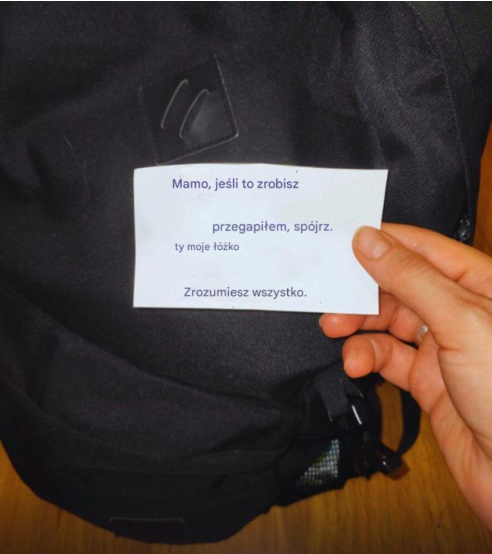 Mamo, jeśli to zrobisz
przegapiłem, spójrz.
ty moje łóżko
Zrozumiesz wszystko.